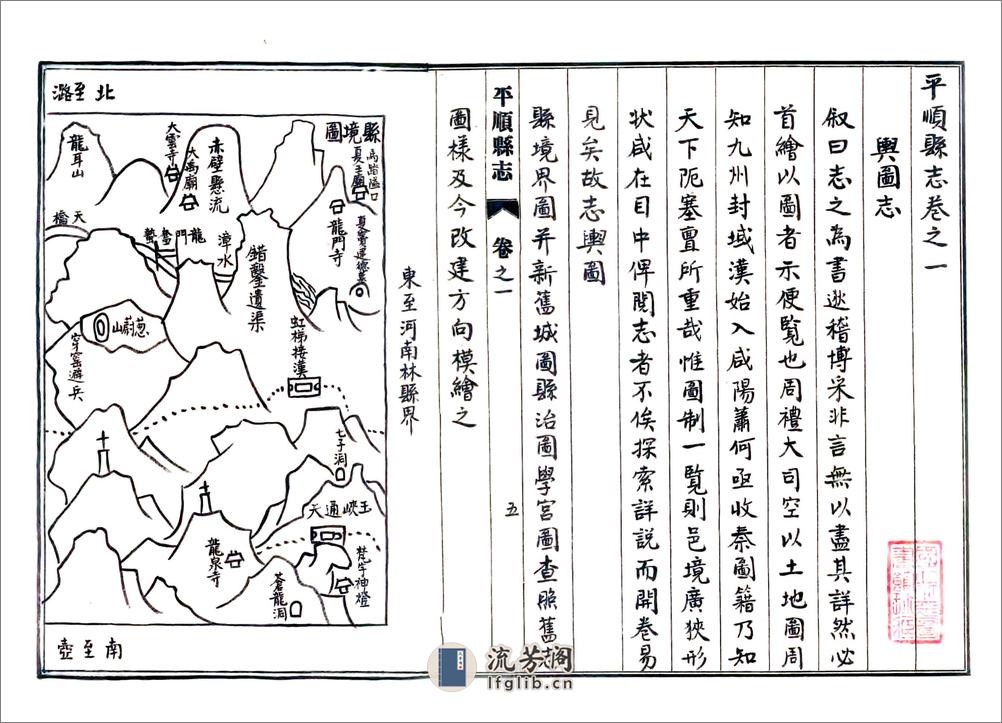 平順縣志卷之一
輿圖志
叙曰志之為書逖稽博采非言無以盡其詳然必
首繪以圖者示便覽也周禮大司空以土地圖周
知九州封域漢始入咸陽蕭何亟收秦圖籍乃知
天下阨塞亶所重哉惟圖制一覽則邑境廣狹形
狀咸在目中俾閱志者不俟探索詳説而開卷易
見矣故志輿圖
縣境界圖并新舊城圖縣治圖學宮圖查照舊志
圖樣及今改建方向模繪之
平順縣志
卷之一
五
東至河南林縣界
北至潞
縣境圖
高踏隘口
夏王廟
龍門寺
赤壁懸流
大雲寺
大禹廟
龍耳山
天橋
龍門
漳水
錯鑿遺渠
虹梯接漢
窑避兵
七子洞
玉峽通天
梵宇神燈
龍泉寺
蒼龍洞
南至壺
流芳阁
lfglib.cn